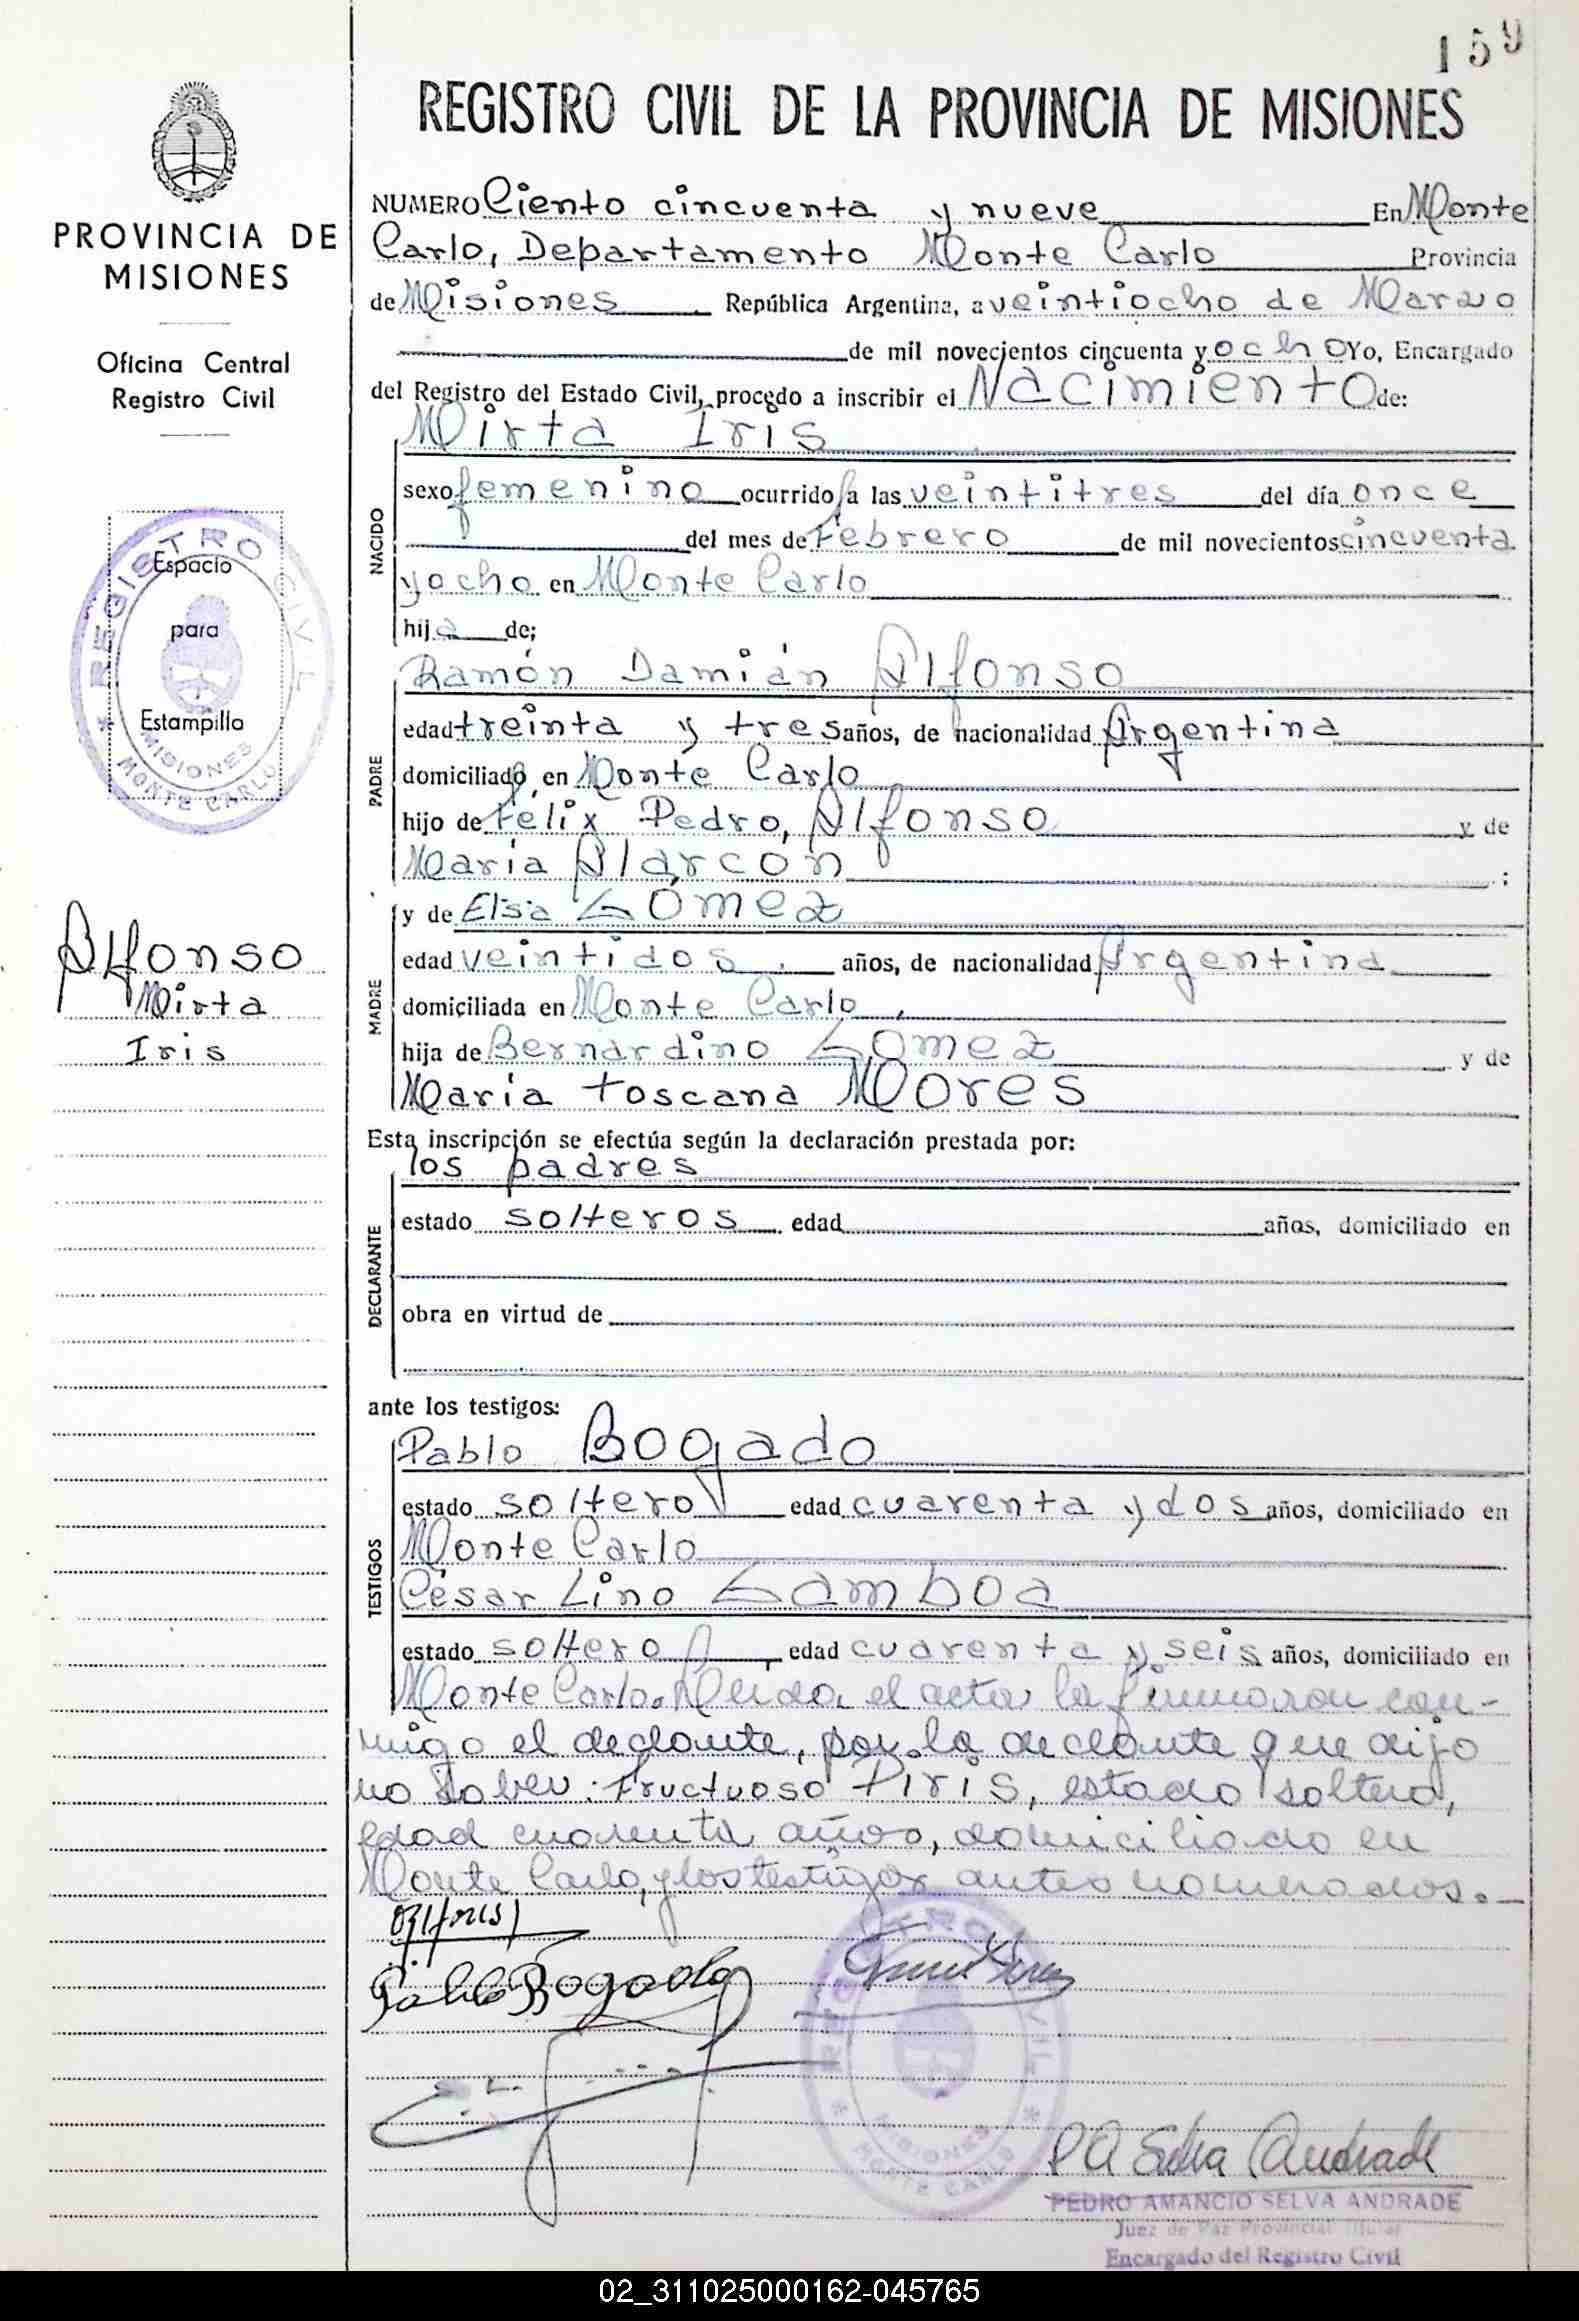 159
REGISTRO CIVIL DE LA PROVINCIA DE MISIONES
PROVINCIA DE
MISIONES
Oficina Central
Registro Civil
REGISTRO CIVIL
Espacio
para
Estampilla
MISIONES
* MONTE CARLO
Alfonso
Mirta
Iris
NUMERO Ciento cincuenta y nueve En Monte
Carlo, Departamento Monte Carlo Provincia
de Misiones República Argentina, a veintiocho de Marzo
de mil novecientos cincuenta y ocho Yo, Encargado
del Registro del Estado Civil, procedo a inscribir el Nacimiento de:
Mirta Iris
NACIDO
sexo femenino ocurrido a las veintitres del día once
del mes de Febrero de mil novecientos cincuenta
y ocho en Monte Carlo
hija de;
Ramón Damián Alfonso
PADRE
edad treinta y tres años, de nacionalidad Argentina
domiciliado en Monte Carlo
hijo de Félix Pedro, Alfonso y de
María Alarcón ;
MADRE
y de Elsa Gómez
edad veintidos años, de nacionalidad Argentina
domiciliada en Monte Carlo,
hija de Bernardino Gómez y de
María Toscana Mores
Esta inscripción se efectúa según la declaración prestada por:
los padres
DECLARANTE
estado solteros edad años, domiciliado en
obra en virtud de
ante los testigos:
Pablo Bogado
TESTIGOS
estado soltero edad cuarenta y dos años, domiciliado en
Monte Carlo
César Lino Gamboa
estado soltero edad cuarenta y seis años, domiciliado en
Monte Carlo. Leida el acta la firmaron con-
migo el declante, por la declante que dijo
no saber: Fructuoso Piris, estado soltero,
edad cuarenta años, domiciliado en
Monte Carlo, y los testigos antes nomrados.
Pablo Bogado
REGISTRO CIVIL
* MISIONES *
MONTE CARLO
P A Selva Andrade
PEDRO AMANCIO SELVA ANDRADE
Juez de Paz Provincial Titular
Encargado del Registro Civil
02_311025000162-045765